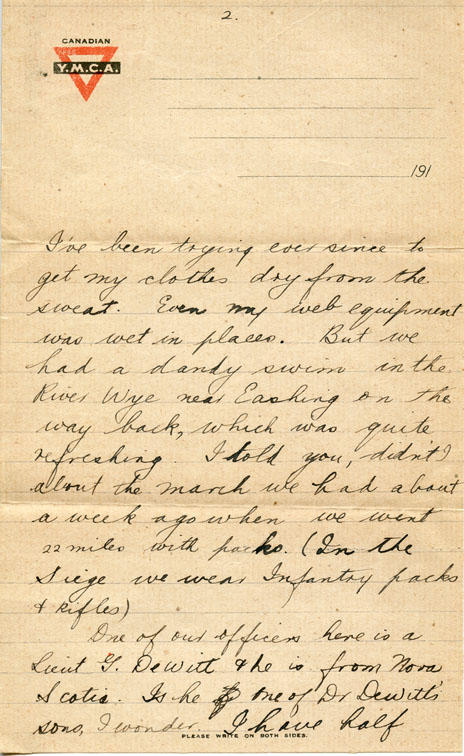 2.
CANADIAN
Y.M.C.A.
191
I've been trying ever since to
get my clothes dry from the
sweat. Even my web equipment
was wet in places. But we
had a dandy swim in the
River Wye near Eashing on the
way back, which was quite
refreshing. I told you, didn't I
about the march we had about
a week ago when we went
22 miles with packs. (In the
Siege we wear Infantry packs
& rifles)
One of our officers here is a
Lieut G. DeWitt & he is from Nova
Scotia. Is he one of Dr DeWitt's
sons, I wonder. I have half
PLEASE WRITE ON BOTH SIDES.